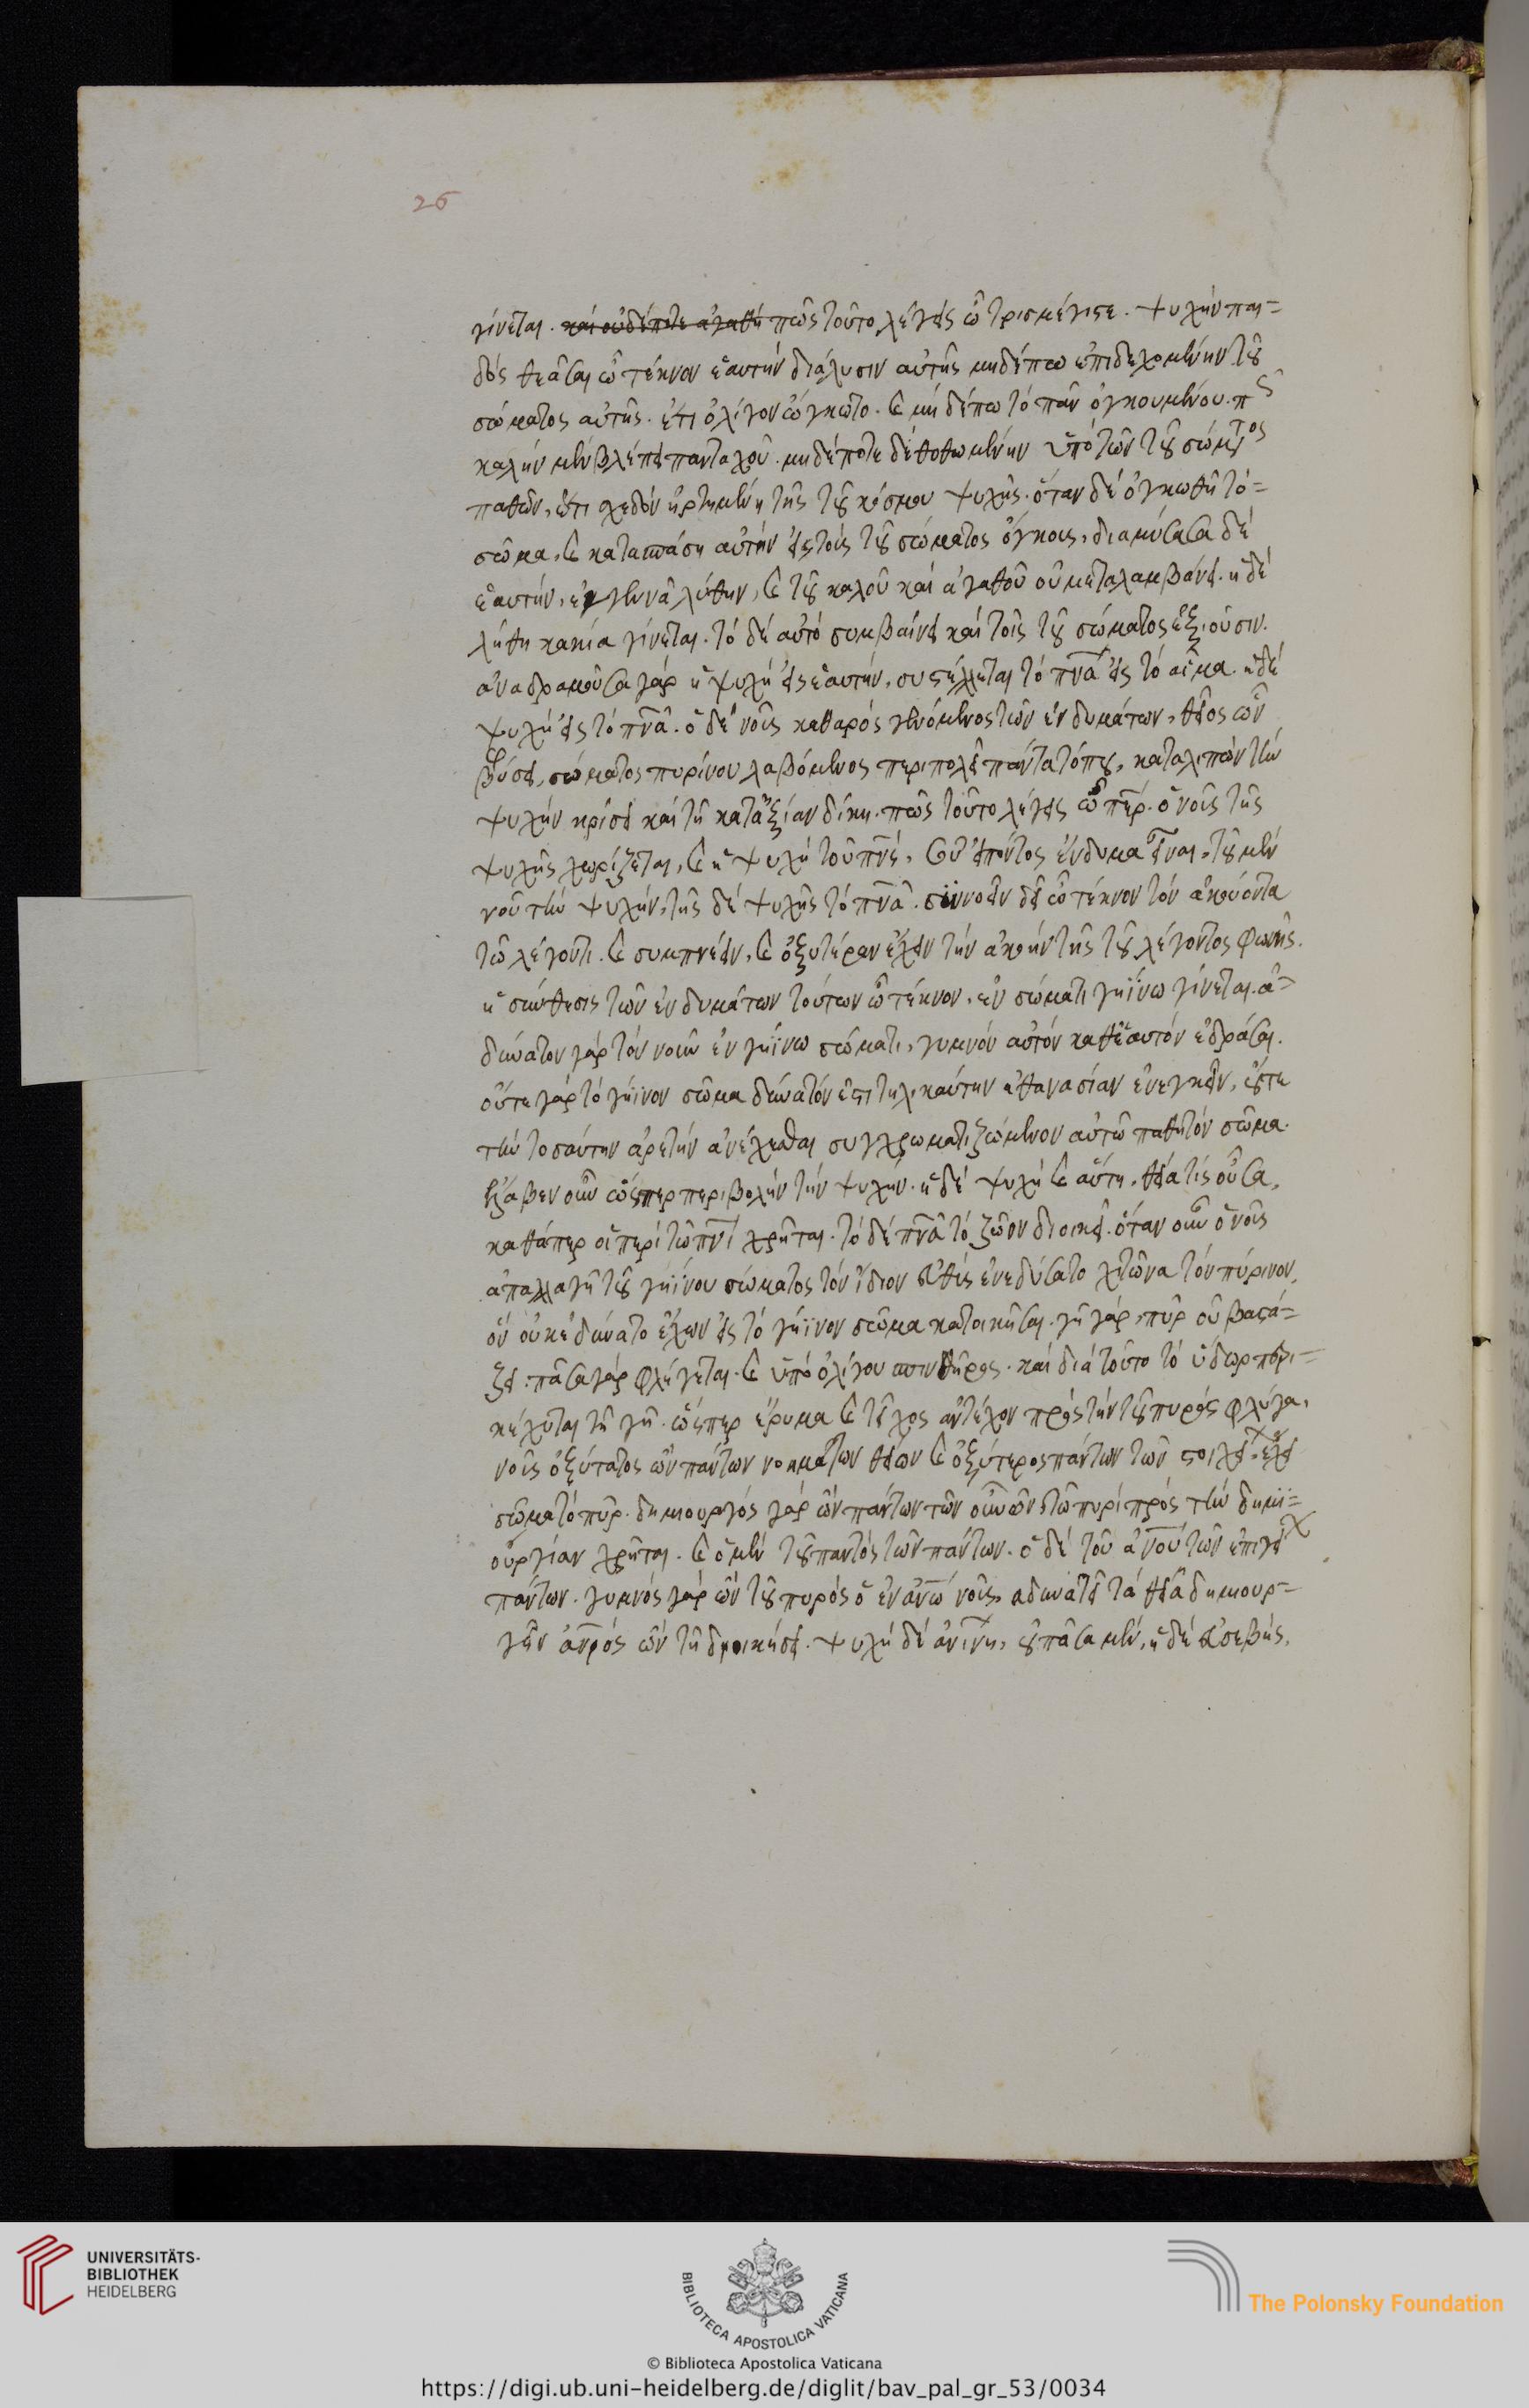 26
γίνεται. καὶ οὐδέποτε ἀγαθὴ πῶς τοῦτο λέγεις ὦ τρισμέγιστε. ψυχὴν παι=
δὸς θεᾶσαι ὦ τέκνον ἑαυτὴν διάλυσιν αὐτῆς μηδέπω ἐπιδεχομένην τοῦ
σώματος αὐτῆς. ἔτι ὀλίγον ὤγκωτο. καὶ μὴ δέπω τὸ πᾶν ὀγκουμένου. πῶς
καλὴν μὲν βλέπει πανταχοῦ. μηδέποτε δὲ θοθωμένην ὑπὸ τῶν τοῦ σώματος
παθῶν, ἔτι σχεδὸν ἠρτημένη τῆς τοῦ κόσμου ψυχῆς. ὅταν δὲ ὀγκωθῇ τὸ=
σῶμα, καὶ κατασπάσῃ αὐτὴν εἰς τοὺς τοῦ σώματος ὄγκους, διαμύσασα δὲ
ἑαυτὴν, ἐγγεννᾷ λύθην, καὶ τοῦ καλοῦ καὶ ἀγαθοῦ οὐ μεταλαμβάνει. ἡ δὲ
λήθη κακία γίνεται. τὸ δὲ αὐτὸ συμβαίνει καὶ τοῖς τοῦ σώματος ἐξιοῦσιν.
ἀναδραμοῦσα γὰρ ἡ ψυχὴ εἰς ἑαυτὴν, συστέλλεται τὸ πνᾶ εἰς τὸ αἷμα. ἡ δὲ
ψυχὴ εἰς τὸ πνᾶ. ὁ δὲ νοῦς καθαρὸς γενόμενος τῶν ἐνδυμάτων, θεῖος ὢν
φύσει, σώματος πυρίνου λαβόμενος περιπολεῖ πάντα τόπον, καταλιπὼν τὴν
ψυχὴν κρίσει καὶ τῇ κατ' ἀξίαν δίκῃ. πῶς τοῦτο λέγεις ὦ περ. ὁ νοῦς τῆς
ψυχῆς χωρίζεται, καὶ ἡ ψυχὴ τοῦ πνς, σοῦ εἰπόντος ἔνδυμα εἶναι, τοῦ μὲν
νοῦ τὴν ψυχὴν, τῆς δὲ ψυχῆς τὸ πνᾶ. συννοεῖν δεῖ ὦ τέκνον τὸν ἀκούοντα
τῷ λέγοντι. καὶ συμπνέειν, καὶ ὀξυτέραν ἔχειν τὴν ἀκοὴν τῆς τοῦ λέγοντος φωνῆς.
ἡ σύνθεσις τῶν ἐνδυμάτων τούτων ὦ τέκνον, ἐν σώματι γηΐνω γίνεται. ἀ=
δύνατον γὰρ τὸν νοῦν ἐν γηΐνω σώματι, γυμνὸν αὐτὸν καθ' ἑαυτὸν ἑδράσαι.
οὔτε γὰρ τὸ γήϊνον σῶμα δυνατόν ἐστι τηλικαύτην ἀθανασίαν ἐνεγκεῖν, οὔτε
τὴν τοσαύτην ἀρετὴν ἀνέχεσθαι συγχρωματιζόμενον αὐτῷ παθητὸν σῶμα.
ἔλαβεν οὖν ὥσπερ περιβολὴν τὴν ψυχὴν. ἡ δὲ ψυχὴ καὶ αὕτη, θεία τὶς οὖσα,
καθάπερ οἱ περὶ τῶ πνὶ χρῆται. τὸ δὲ πνᾶ τὸ ζῶον διοικεῖ. ὅταν οὖν ὁ νοῦς
ἀπαλλαγῇ τοῦ γηΐνου σώματος τὸν ἴδιον εὐθὺς ἐνεδύσατο χιτῶνα τὸν πύρινον,
ὃν οὐκ ἐδύνατο ἔχων εἰς τὸ γήϊνον σῶμα κατοικῆσαι. γῆ γὰρ, πῦρ οὐ βαστά=
ζει. πᾶσα γὰρ φλέγεται. καὶ ὑπὸ ὀλίγου σπινθῆρος. καὶ διὰ τοῦτο τὸ ὕδωρ περι=
κέχυται τῇ γῇ. ὥσπερ ἔρυμα καὶ τεῖχος ἀντέχον πρὸς τὴν τοῦ πυρὸς φλόγα,
νοῦς ὀξύτατος ὢν πάντων νοημάτων θείων καὶ ὀξύτερος πάντων τῶν στοιχεί. ἔχει
σῶμα τὸ πῦρ. δημιουργὸς γὰρ ὢν πάντων τῶν οὖν ὢν, τῶ πυρὶ πρὸς τὴν δημι=
ουργίαν χρῆται. καὶ ὁ μὲν τοῦ παντὸς τῶν πάντων. ὁ δὲ τοῦ ἀνοῦ τῶν ἐπιγεί
πάντων. γυμνὸς γὰρ ὢν τοῦ πυρὸς ὁ ἐν ἀνῶ νοῦς, ἀδυνατεῖ τὰ θεῖα δημιουρ=
γεῖν ἀνρὸς ὢν τῇ διοικήσει. ψυχὴ δὲ ἀνίνη, οὐ πᾶσα μὲν, ἡ δὲ εὐσεβὴς,
UNIVERSITÄTS-
BIBLIOTHEK
HEIDELBERG
BIBLIOTECA APOSTOLICA VATICANA
© Biblioteca Apostolica Vaticana
The Polonsky Foundation
https://digi.ub.uni-heidelberg.de/diglit/bav_pal_gr_53/0034